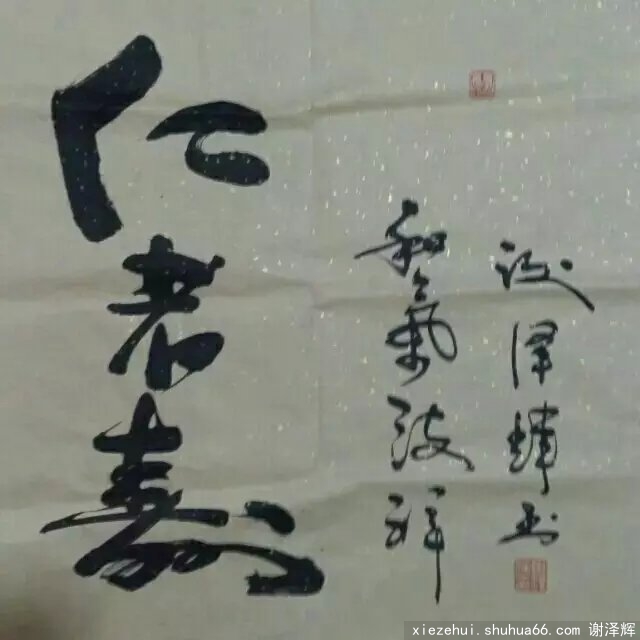 仁者寿
和氣致祥
谢泽辉书
xiezehui.shuhua66.com 谢泽辉